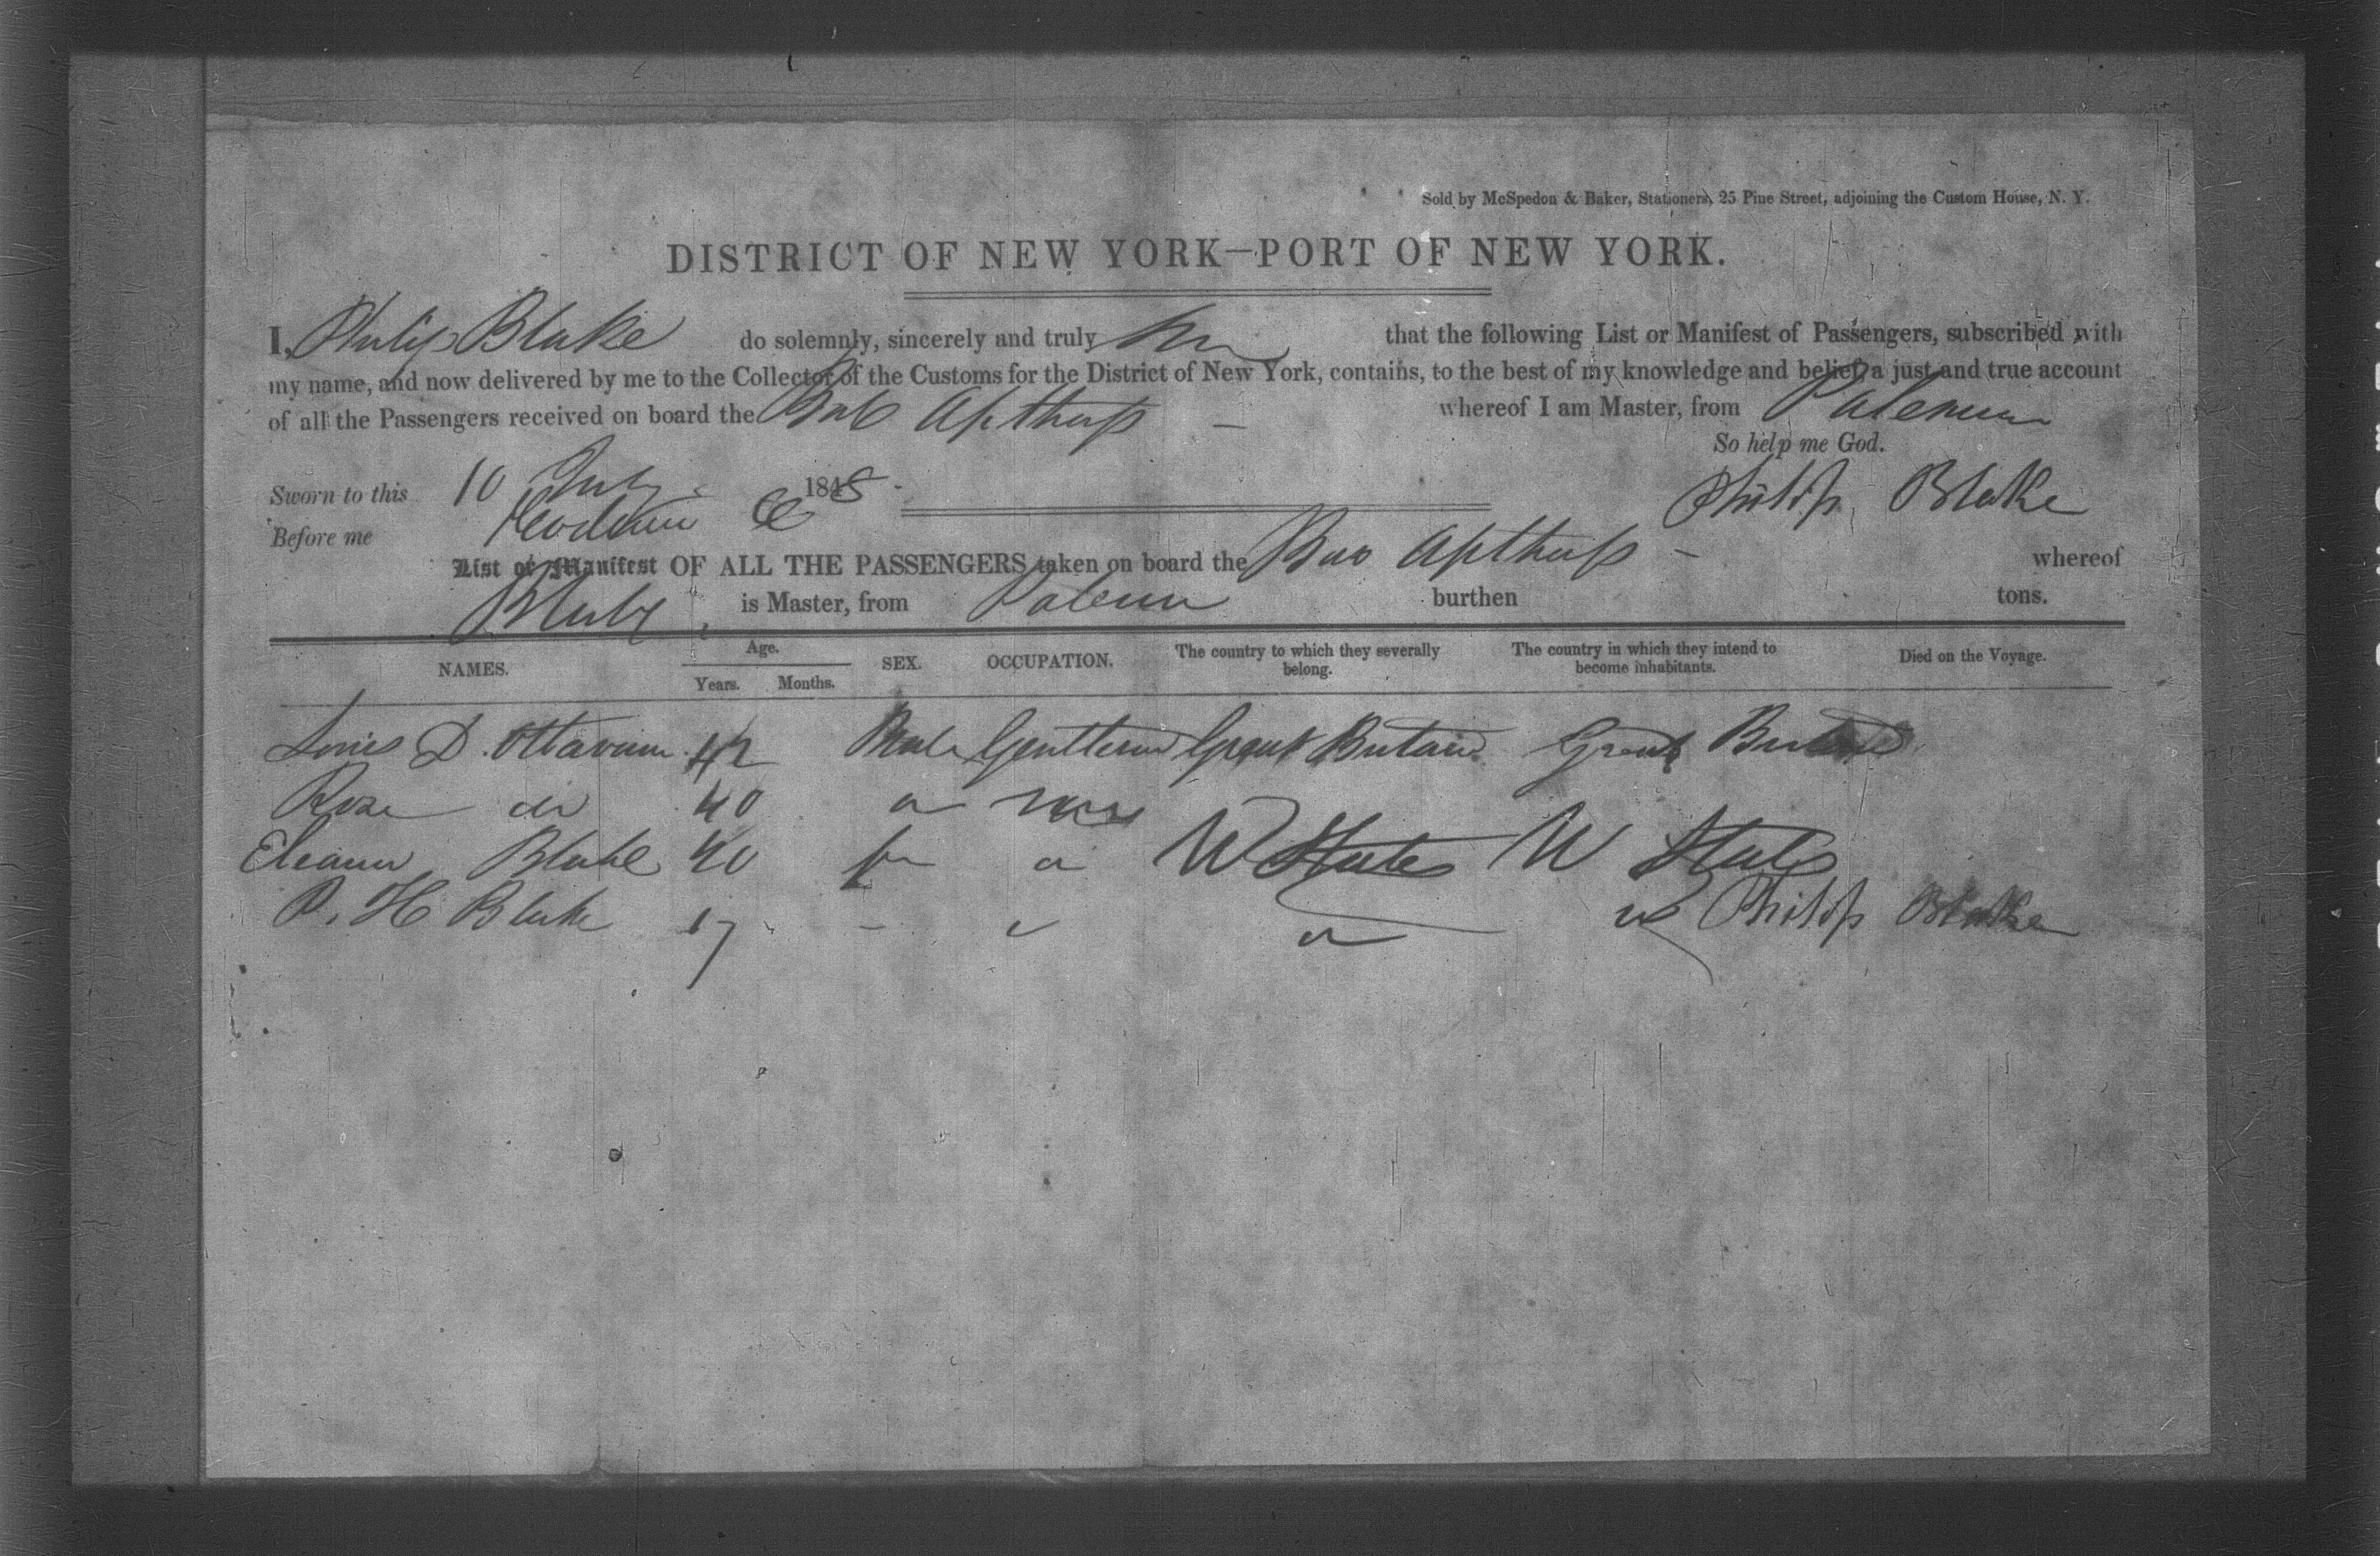 Sold by McSpedon & Baker, Stationers, 25 Pine Street, adjoining the Custom House, N. Y.
DISTRICT OF NEW YORK—PORT OF NEW YORK.
I, Philip Blake do solemnly, sincerely and truly that the following List or Manifest of Passengers, subscribed with
my name, and now delivered by me to the Collector of the Customs for the District of New York, contains, to the best of my knowledge and belief, a just and true account
of all the Passengers received on board the Apthorp whereof I am Master, from Palermo
So help me God.
Sworn to this 10 July 1848
Philip Blake
Before me
List or Manifest OF ALL THE PASSENGERS taken on board the Apthorp whereof
Blake is Master, from Palermo burthen tons.
NAMES. Age. Years. Months. SEX. OCCUPATION. The country to which they severally belong. The country in which they intend to become inhabitants. Died on the Voyage.
Louis D. Ottavium 42 Male Gentleman Great Britain Great Britain
Rose do 40
Eleanor Blake 40 U States U States
P. H Blake 17
Philip Blake